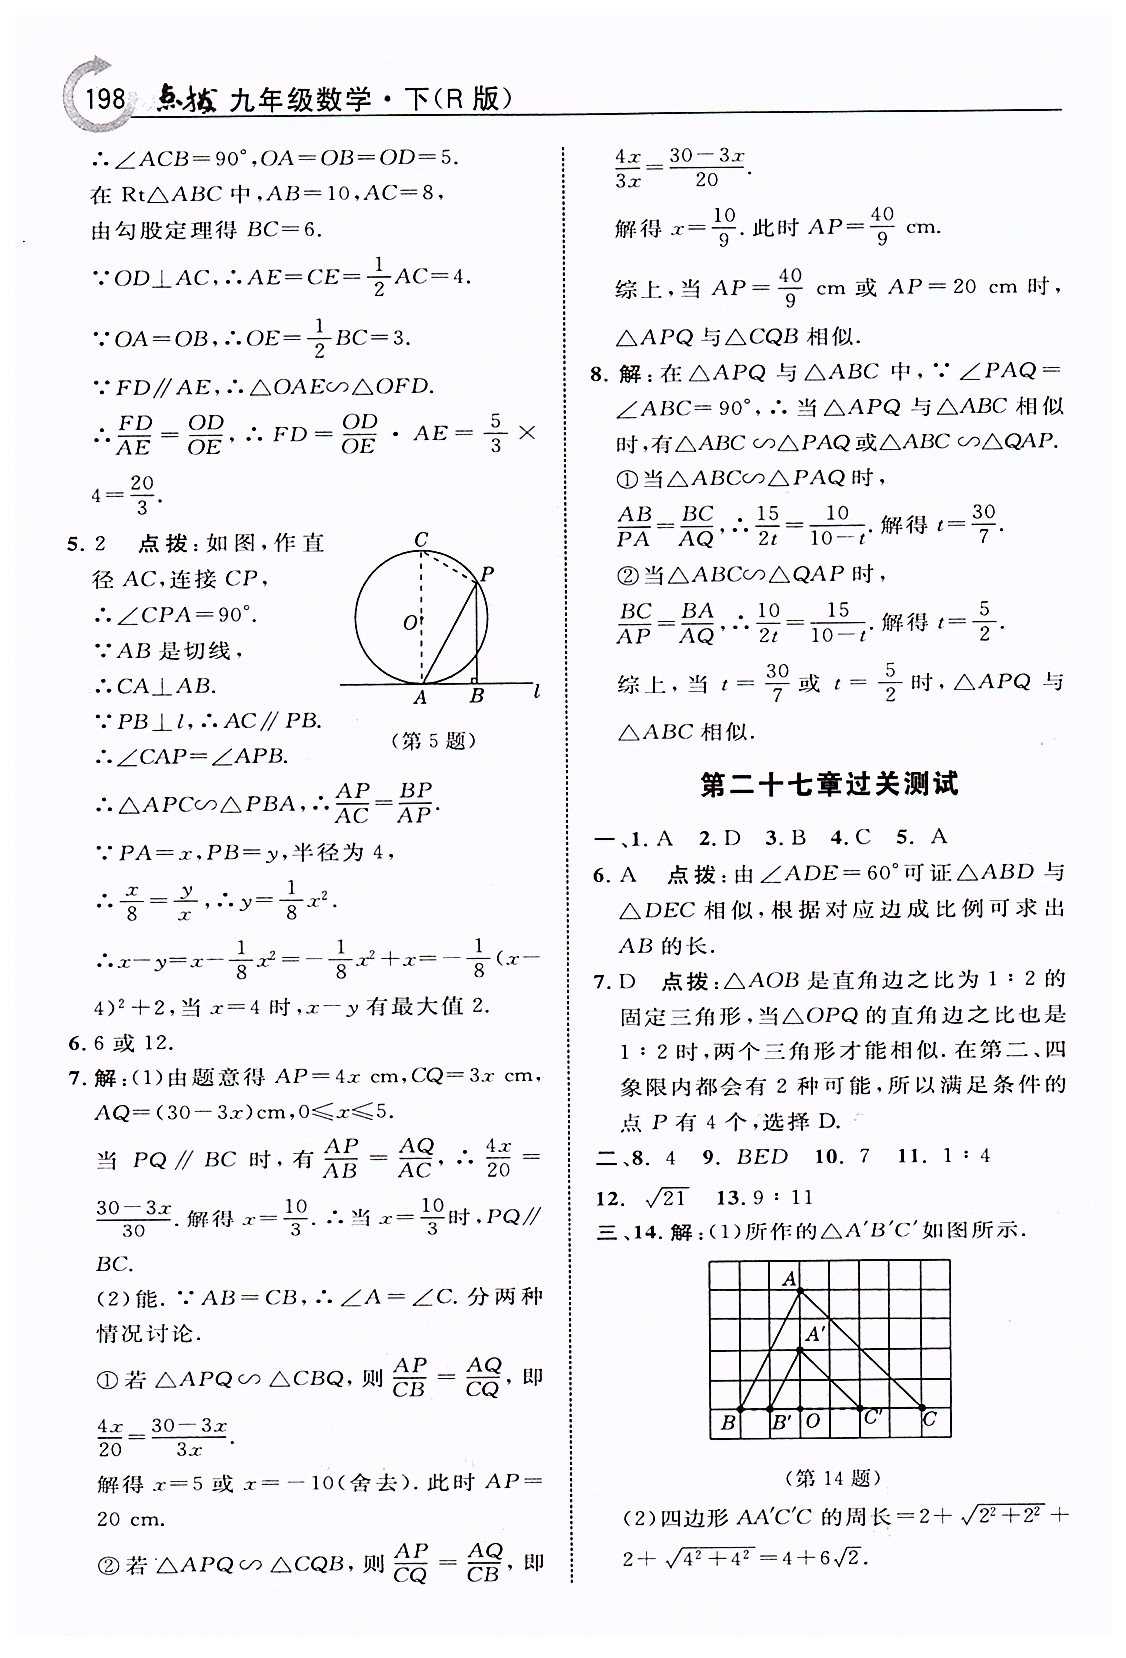 198 点拨 九年级数学·下(R版)
∴∠ACB=90°,OA=OB=OD=5.
在 Rt△ABC 中,AB=10,AC=8,
由勾股定理得 BC=6.
∵OD⊥AC,∴AE=CE=1/2AC=4.
∵OA=OB,∴OE=1/2BC=3.
∵FD∥AE,∴△OAE∽△OFD.
∴FD/AE=OD/OE,∴FD=OD/OE·AE=5/3×
4=20/3.
5. 2 点拨:如图,作直
径 AC,连接 CP,
∴∠CPA=90°.
∵AB 是切线,
∴CA⊥AB.
∵PB⊥l,∴AC∥PB.
∴∠CAP=∠APB.
C
P
O
A
B
l
(第 5 题)
∴△APC∽△PBA,∴AP/AC=BP/AP.
∵PA=x,PB=y,半径为 4,
∴x/8=y/x,∴y=1/8x².
∴x-y=x-1/8x²=-1/8x²+x=-1/8(x-
4)²+2,当 x=4 时,x-y 有最大值 2.
6. 6 或 12.
7. 解:(1)由题意得 AP=4x cm,CQ=3x cm,
AQ=(30-3x)cm,0≤x≤5.
当 PQ∥BC 时,有 AP/AB=AQ/AC,∴4x/20=
(30-3x)/30.解得 x=10/3.∴当 x=10/3时,PQ∥
BC.
(2)能.∵AB=CB,∴∠A=∠C.分两种
情况讨论.
①若△APQ∽△CBQ,则 AP/CB=AQ/CQ,即
4x/20=(30-3x)/3x.
解得 x=5 或 x=-10(舍去).此时 AP=
20 cm.
②若△APQ∽△CQB,则 AP/CQ=AQ/CB,即
4x/3x=(30-3x)/20.
解得 x=10/9.此时 AP=40/9 cm.
综上,当 AP=40/9 cm 或 AP=20 cm 时,
△APQ 与△CQB 相似.
8. 解:在△APQ 与△ABC 中,∵∠PAQ=
∠ABC=90°,∴当△APQ 与△ABC 相似
时,有△ABC∽△PAQ或△ABC∽△QAP.
①当△ABC∽△PAQ 时,
AB/PA=BC/AQ,∴15/2t=10/(10-t).解得 t=30/7.
②当△ABC∽△QAP 时,
BC/AP=BA/AQ,∴10/2t=15/(10-t).解得 t=5/2.
综上,当 t=30/7 或 t=5/2 时,△APQ 与
△ABC 相似.
第二十七章过关测试
一、1. A 2. D 3. B 4. C 5. A
6. A 点拨:由∠ADE=60°可证△ABD 与
△DEC 相似,根据对应边成比例可求出
AB 的长.
7. D 点拨:△AOB 是直角边之比为 1∶2 的
固定三角形,当△OPQ 的直角边之比也是
1∶2 时,两个三角形才能相似.在第二、四
象限内都会有 2 种可能,所以满足条件的
点 P 有 4 个,选择 D.
二、8. 4 9. BED 10. 7 11. 1∶4
12. √21 13. 9∶11
三、14. 解:(1)所作的△A′B′C′如图所示.
A
A′
B B′ O C′ C
(第 14 题)
(2)四边形 AA′C′C 的周长=2+√(2²+2²)+
2+√(4²+4²)=4+6√2.